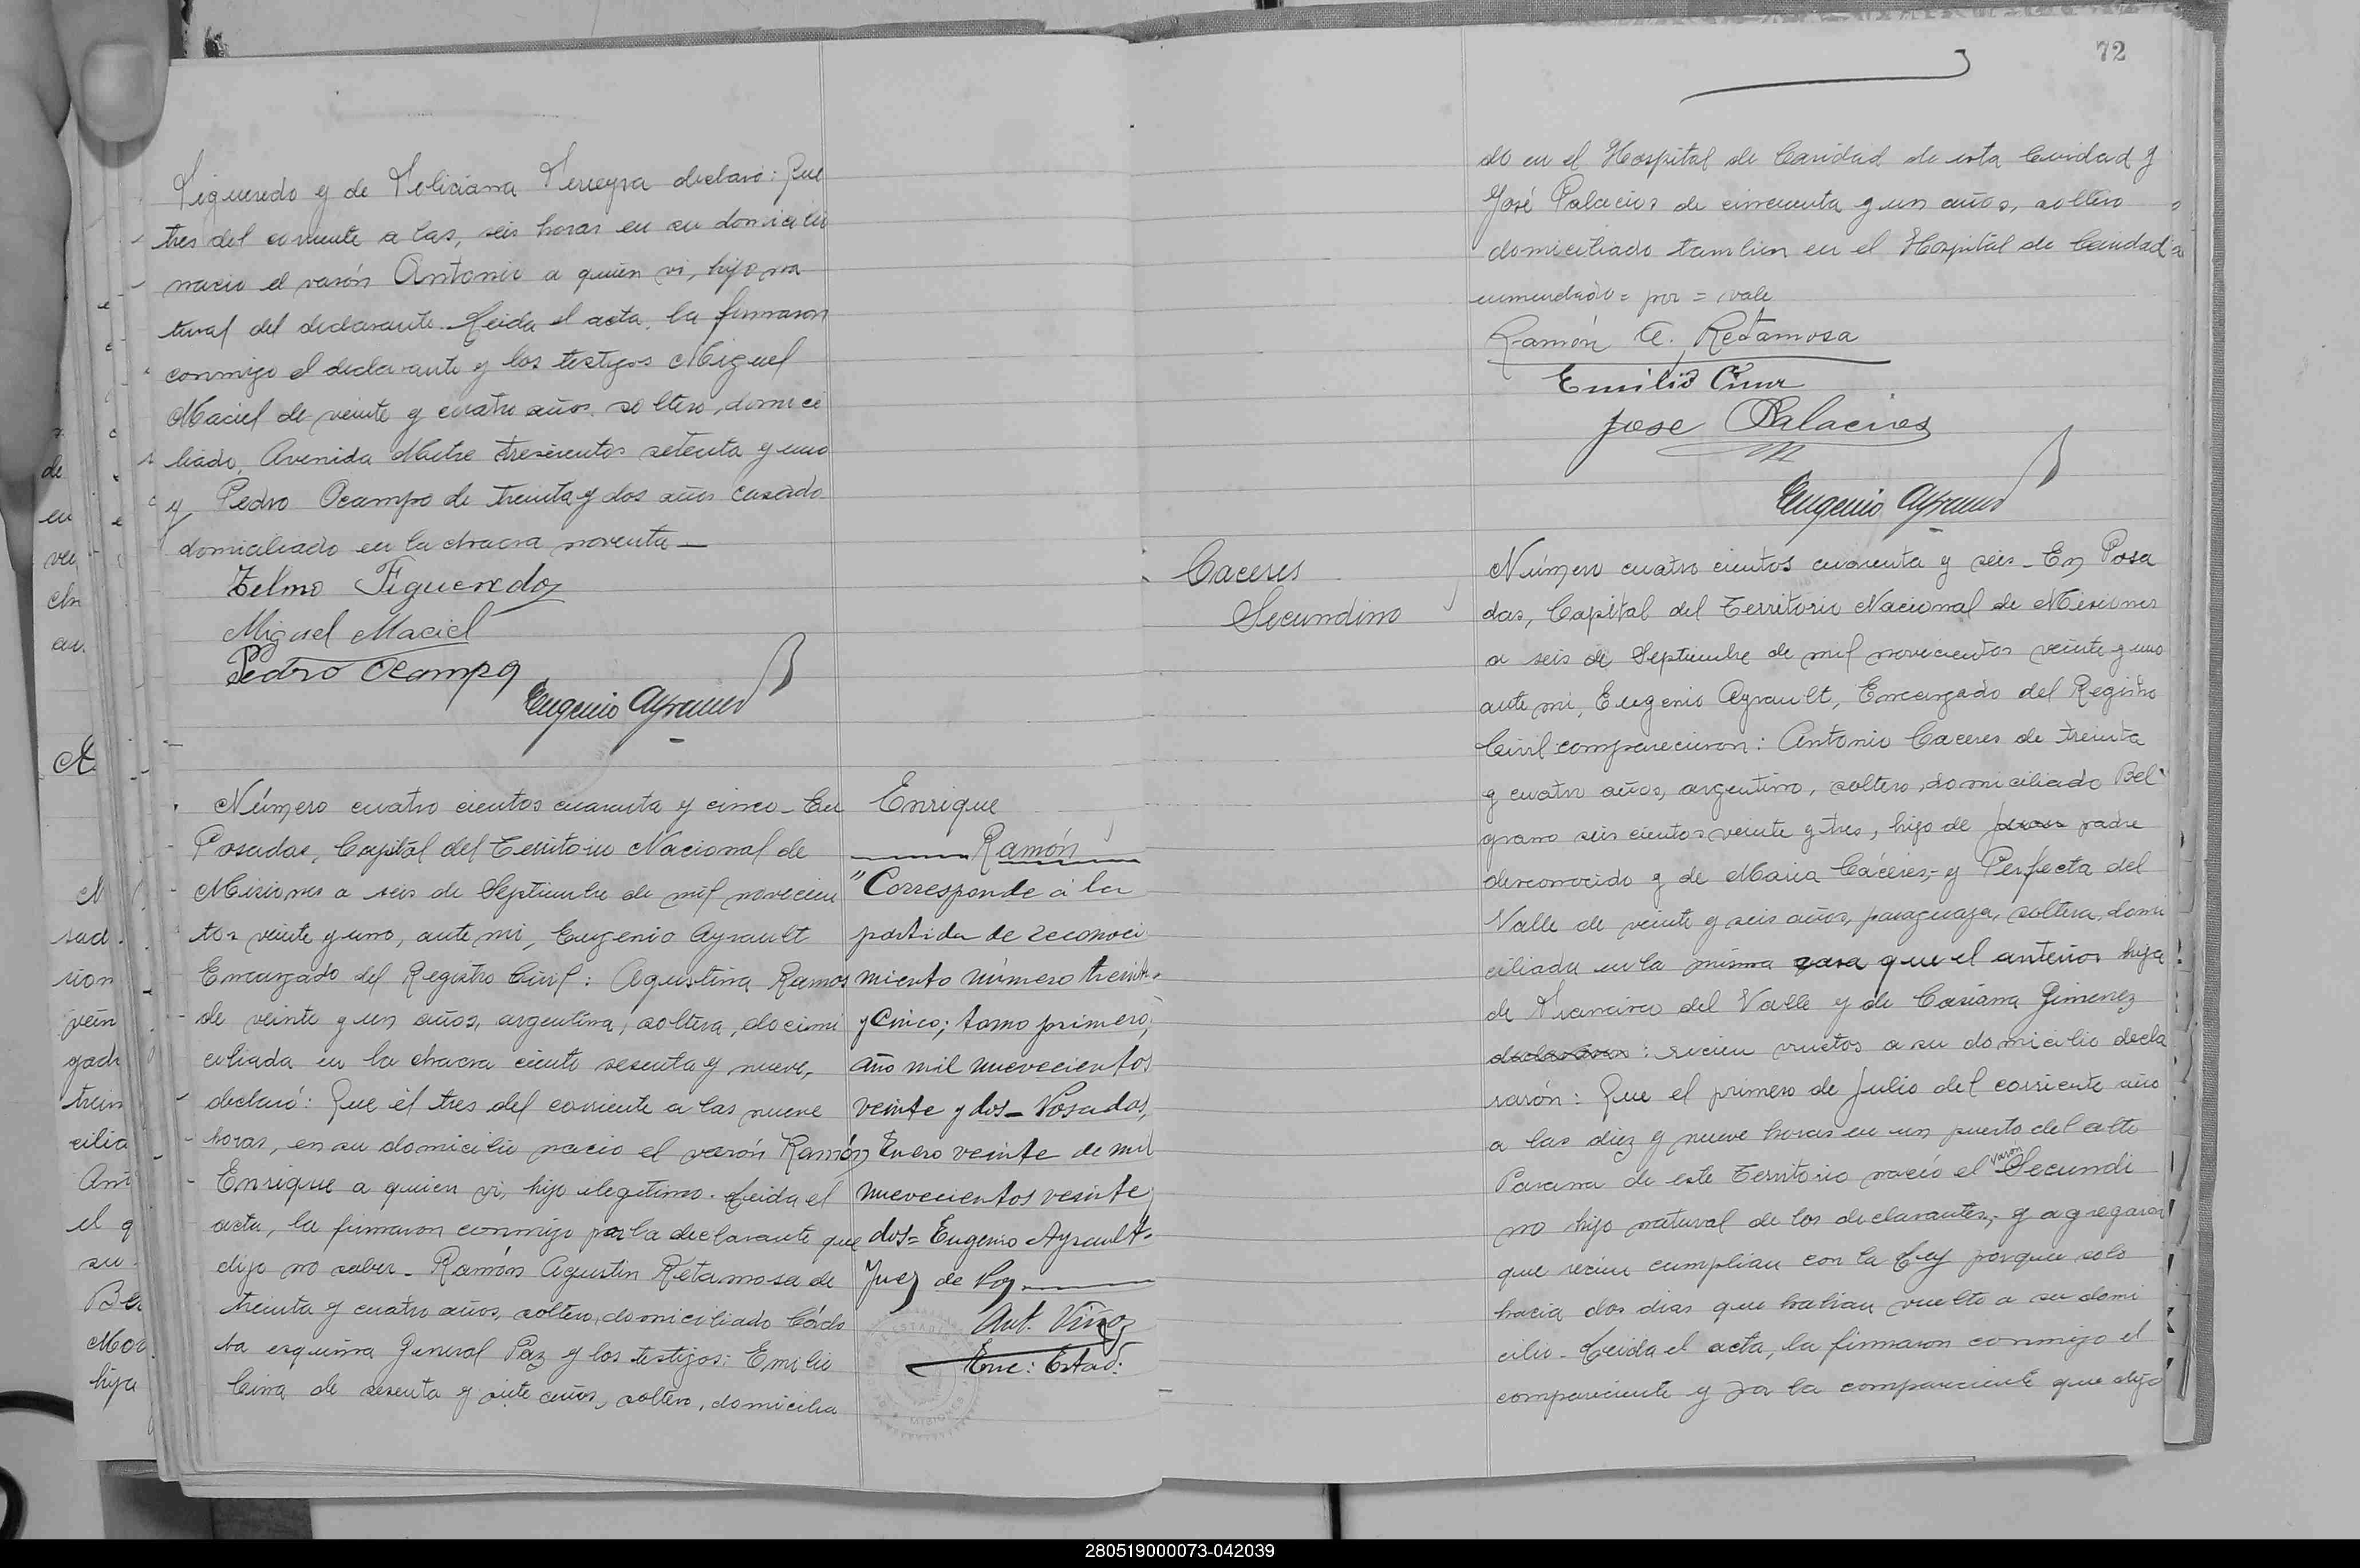 Figueredo y de Feliciana Ferreyra declaró: Que
tres del corriente a las, seis horas en su domicilio
nacio el varón Antonio a quien vi, hijo na
tural del declarante. Leida el acta, la firmaron
conmigo el declarante y los testigos Miguel
Maciel de veinte y cuatro años, soltero, domici
liado, Avenida Mitre trescientos setenta y uno
y Pedro Ocampo de treinta y dos años casado
domiciliado en la chacra noventa —
Telmo Figueredo
Miguel Maciel
Pedro Ocampo
Eugenio Ayrault
Número cuatro cientos cuarenta y cinco - En
Posadas, Capital del Territorio Nacional de
Misiones a seis de Septiembre de mil novecien
tos veinte y uno, ante mi, Eugenio Ayrault
Encargado del Registro Civil: Agustina Ramos
de veinte y un años, argentina, soltera, docimi
ciliada en la chacra ciento sesenta y nueve,
declaró: Que el tres del corriente a las nueve
horas, en su domicilio nacio el varón Ramón
Enrique a quien vi, hijo ilegitimo. Leida el
acta, la firmaron conmigo por la declarante que
dijo no saber - Ramón Agustin Retamosa de
treinta y cuatro años, soltero, domiciliado Córdo
ba esquina General Paz y los testigos: Emilio
Cima de sesenta y siete años, soltero, domicilia
Enrique
Ramón
"Corresponde á la
partida de reconoci
miento número treinta
y cinco; tomo primero,
año mil nuevecientos
veinte y dos - Posadas,
Enero veinte de mil
nuevecientos veinte y
dos = Eugenio Ayrault.
Juez de Paz
Enc: Estad:
72
do en el Hospital de Caridad de esta Ciudad y
José Palacios de cincuenta y un años, soltero
domiciliado tambien en el Hospital de Caridad
enmendado = por = vale
Ramón A. Retamosa
Emilio Cima
Jose Palacios
Eugenio Ayrault
Caceres
Secundino
Número cuatro cientos cuarenta y seis - En Posa
das, Capital del Territorio Nacional de Misiones
a seis de Septiembre de mil novecientos veinte y uno
ante mi, Eugenio Ayrault, Encargado del Registro
Civil comparecieron: Antonio Caceres de treinta
y cuatro años, argentino, soltero, domiciliado Bel
grano seis cientos veinte y tres, hijo de padre
desconocido y de Maria Cáceres; y Perfecta del
Valle de veinte y seis años, paraguaya, soltera, domi
ciliada en la misma casa que el anterior hija
de Francisco del Valle y de Casiana Gimenez
declararon: recien vueltos a su domicilio decla
rarón: Que el primero de Julio del corriente año
a las diez y nueve horas en un puerto del alto
Parana de este Territorio nació el varón Secundi
no hijo natural de los declarantes; y agregaron
que recien cumplian con la Ley porque solo
hacia dos dias que habian vuelto a su domi
cilio. Leida el acta, la firmaron conmigo el
compareciente y por la compareciente que dijo
280519000073-042039